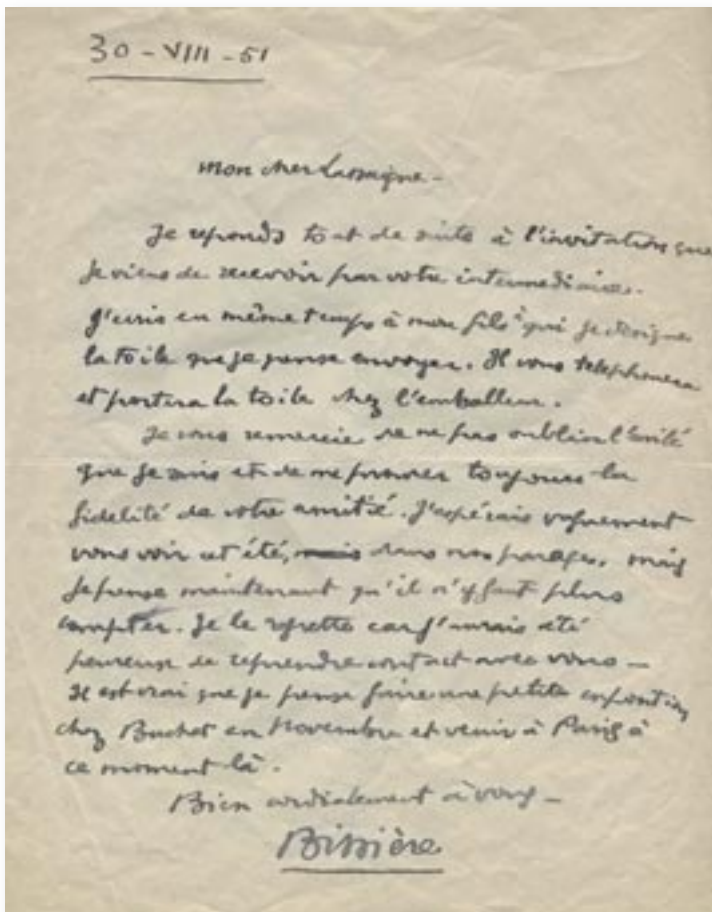 30 - VIII - 51
mon cher Lassaigne -
Je reponds tout de suite à l'invitation que
je viens de recevoir par votre intermediaire.
J'ecris en même temps à mon fils à qui je designe
la toile que je pense envoyer. Il vous telephonera
et portera la toile chez l'emballeur.
Je vous remercie de ne pas oublier l'exilé
que je suis et de me prouver toujours la
fidelité de votre amitié. J'esperais vaguement
vous voir cet été, dans nos parages, mais
je pense maintenant qu'il n'y faut plus
compter. Je le regrette car j'aurais été
heureux de reprendre contact avec vous -
Il est vrai que je pense faire une petite exposition
chez Bucher en Novembre et venir à Paris à
ce moment là.
Bien cordialement à vous -
Bissière